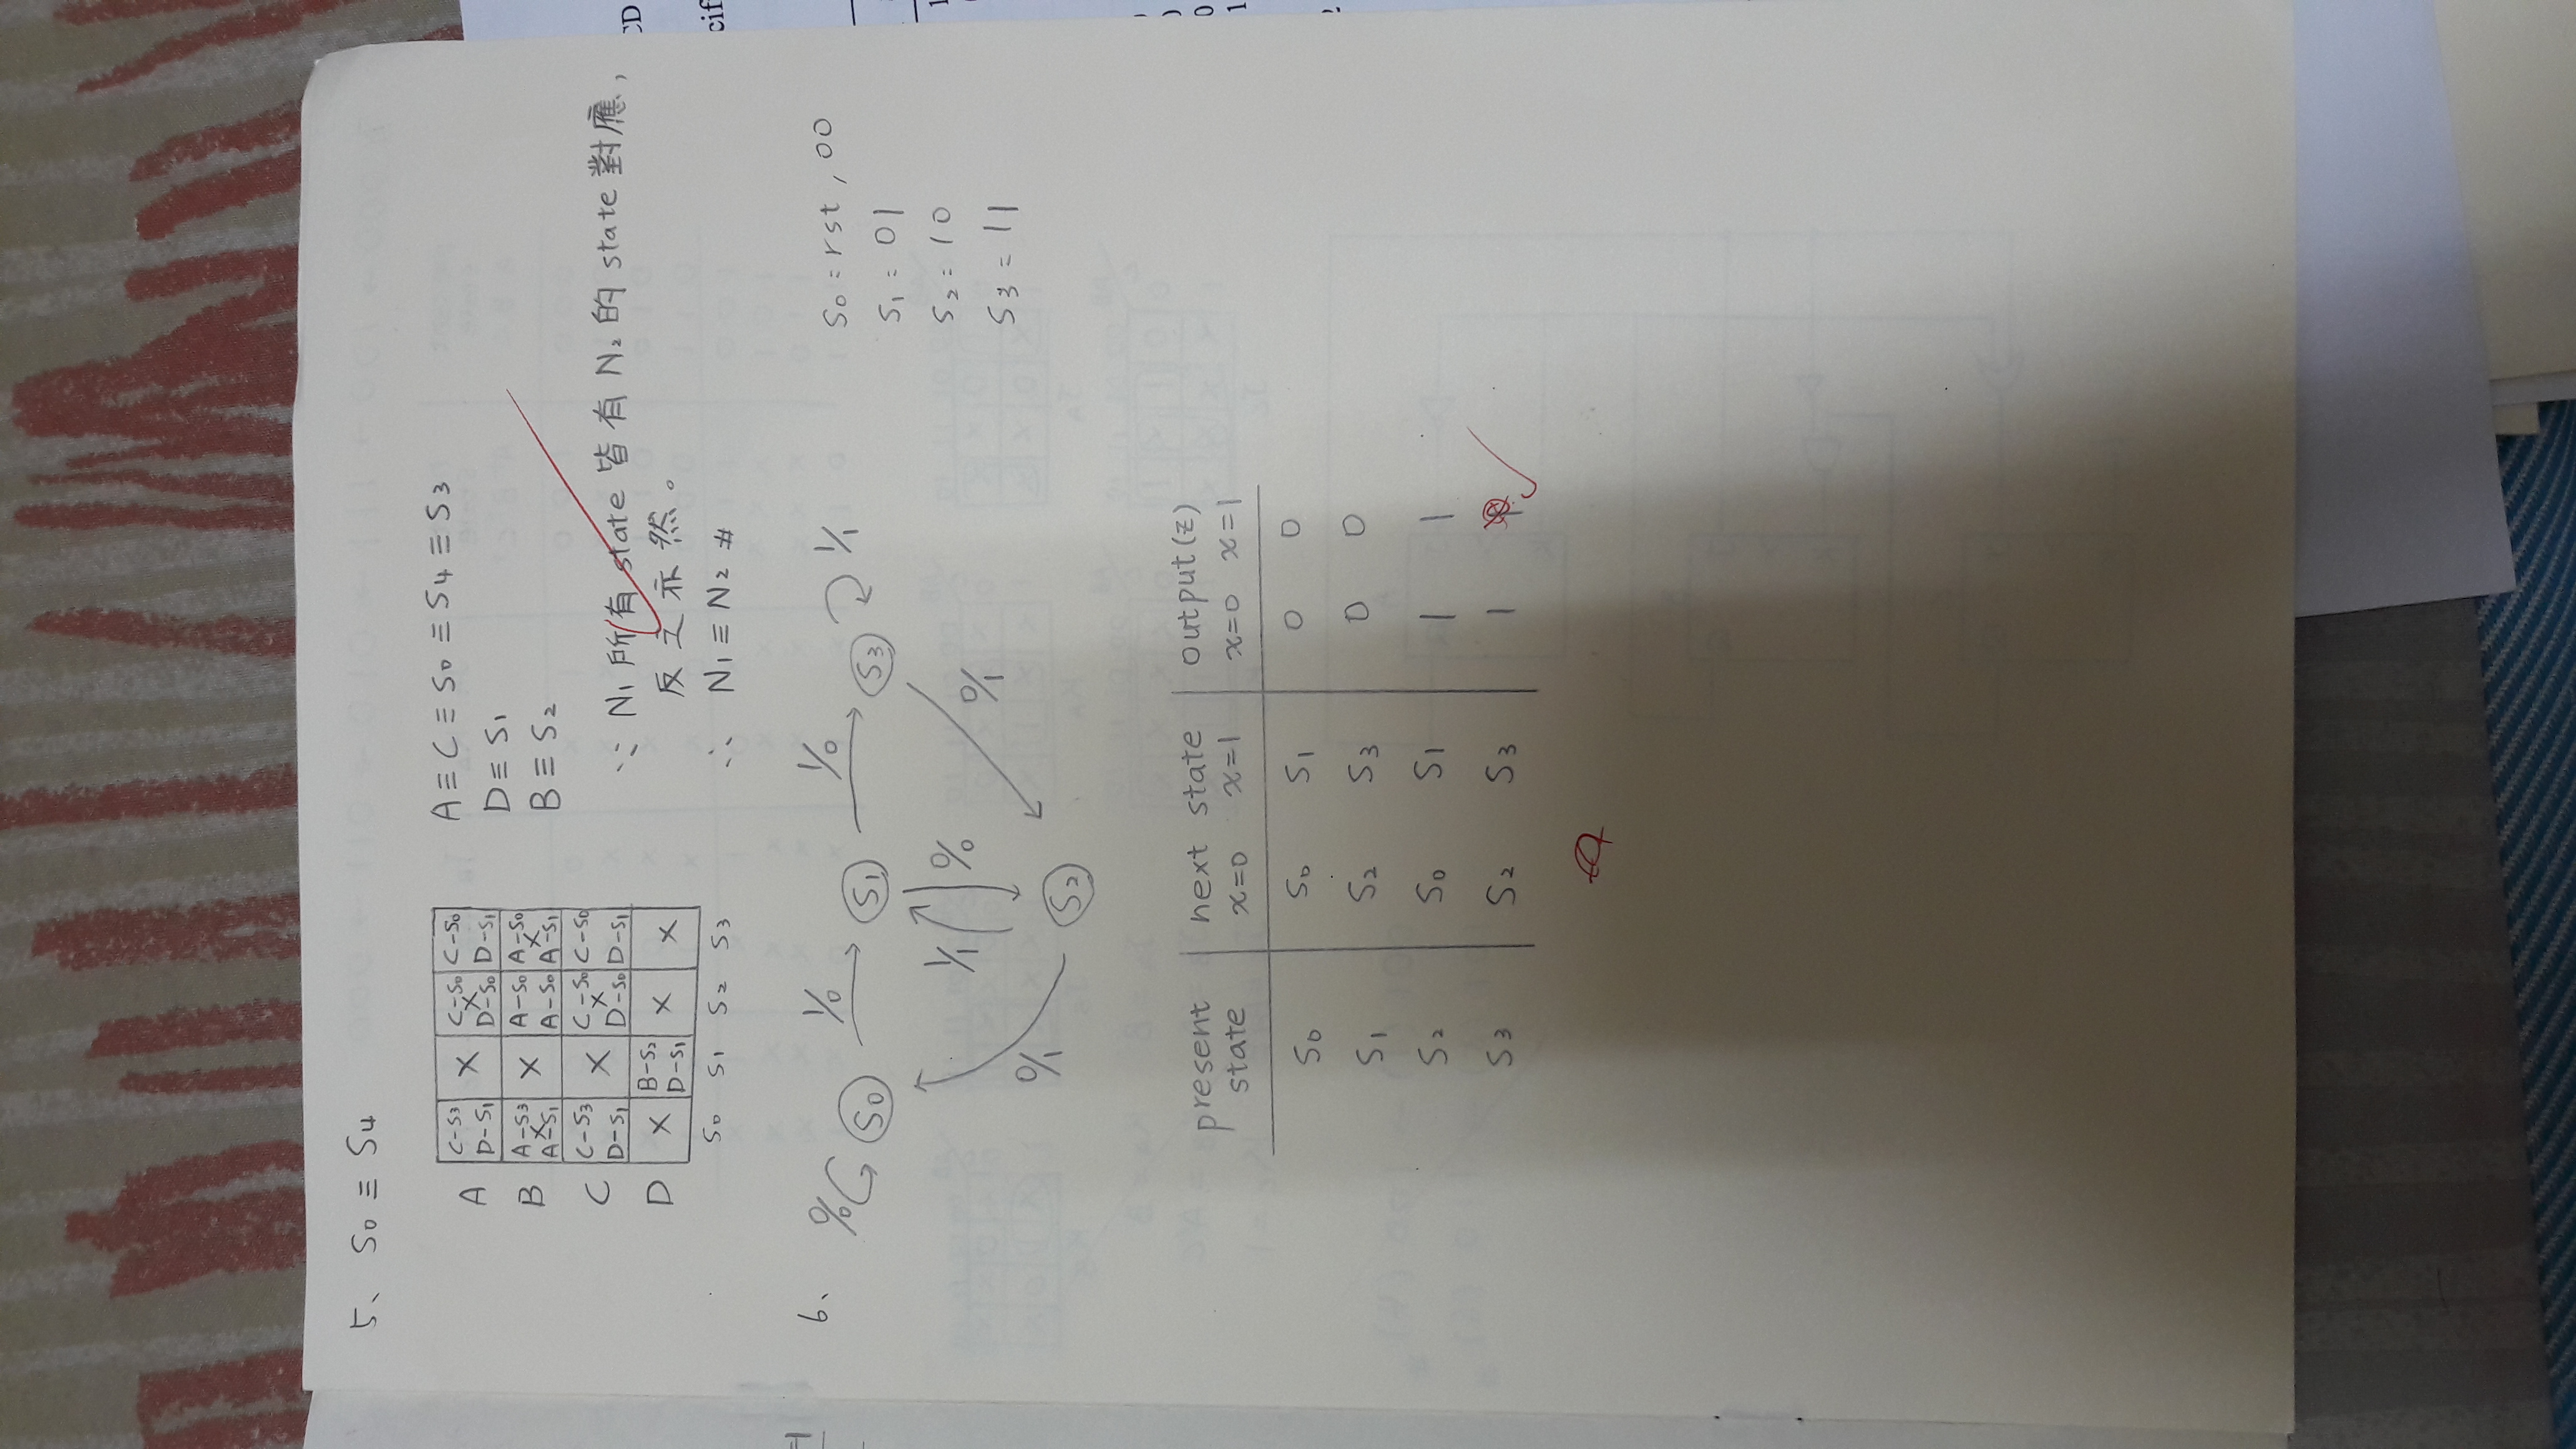 5、 S₀ ≡ S₄
A C-S₃ D-S₁ × C-S₀ × D-S₀ C-S₀ D-S₁
B A-S₃ × A-S₁ × A-S₀ A-S₀ A-S₀ × A-S₁
C C-S₃ D-S₁ × C-S₀ × D-S₀ C-S₀ D-S₁
D × B-S₂ D-S₁ × ×
S₀ S₁ S₂ S₃
A ≡ C ≡ S₀ ≡ S₄ ≡ S₃
D ≡ S₁
B ≡ S₂
∵ N₁ 所有 state 皆有 N₂ 的 state 對應,
反之亦然。
∴ N₁ ≡ N₂ #
6、
0/0 S₀ 1/0 S₁ 1/0 S₃ 1/1
0/1 1/1 0/0 0/1
S₂
S₀ = rst , 00
S₁ = 01
S₂ = 10
S₃ = 11
present state next state output(z)
x=0 x=1 x=0 x=1
S₀ S₀ S₁ 0 0
S₁ S₂ S₃ 0 0
S₂ S₀ S₁ 1 1
S₃ S₂ S₃ 1
CD
cif